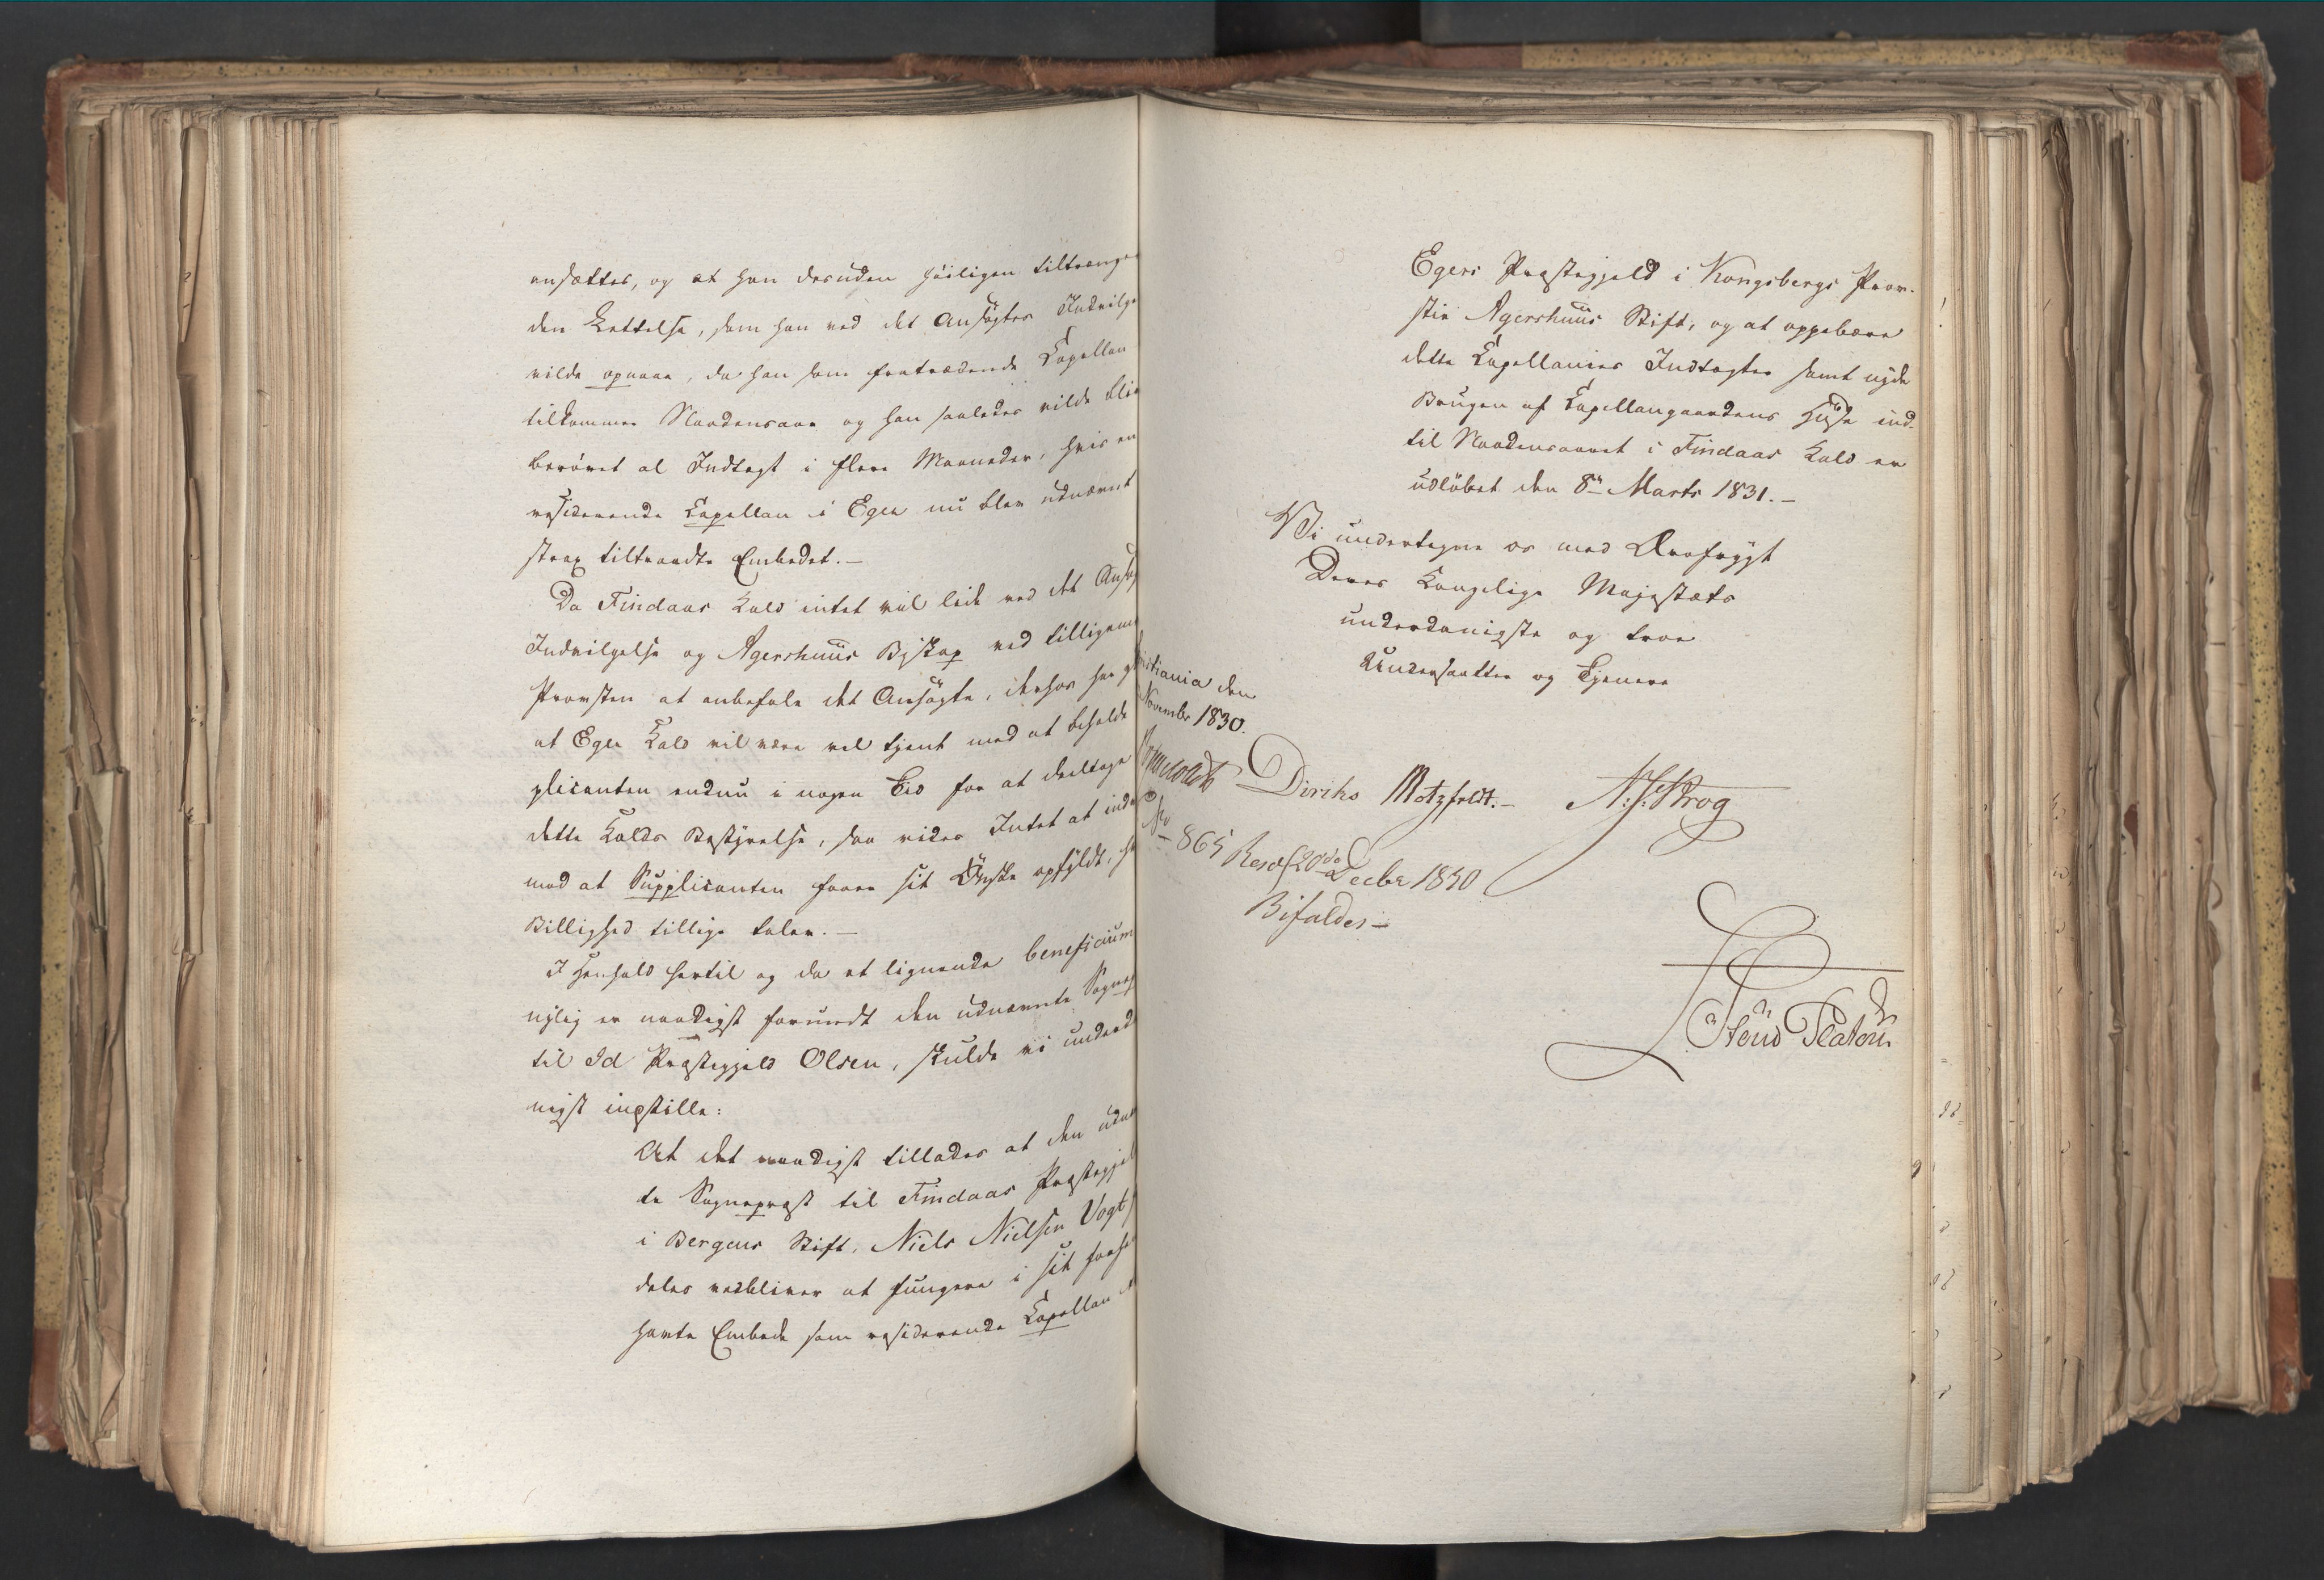 ansættes, og at han desuden höiligen tiltrænge
den Lettelse, som han ved det Ansøgtes Indvilge
vilde opnaae, da han som fratrædende Capellan
tilkommer Naadensaar og han saaledes vilde bliv
berövet al Indtægt i flere Maaneder, hvis en
residerende Capellan i Eger nu blev udnævnt
strax tiltraadte Embedet.—
Da Findaas Kald intet vil lide ved det Ansøg
Indvilgelse og Agershuus Biskop ved tilligem
Provsten at anbefale det Ansøgte, derhos har
at Eger Kald vil være vel tjent med at beholde
plicanten endnu i nogen Tid for at deeltage
dette Kalds Bestyrelse, saa vides Intet at ind
mod at Supplicanten faaer sit Ønske opfyldt,
Billighed tillige taler.—
I Henhold hertil og da et lignende beneficium
nylig er naadigst forundt den udnævnte Sogne
til Id Præstegjeld Olsen, skulde vi underd
nigst indstille:
At det naadigst tillades at den udn
te Sognepræst til Findaas Præstegjel
i Bergens Stift, Niels Nielsen Vogt
deles vedbliver at fungere i sit forh
havte Embede som residerende Capellan
Egers Præstegjeld i Kongsbergs Prov-
stie Agershuus Stift, og at oppebære
dette Capellanies Indtægter samt nyde
Brugen af Capellangaardens Huse ind-
til Naadensaaret i Findaas Kald er
udløbet den 8de Marts 1831.—
Vi undertegne os med Ærefrygt
Deres Kongelige Majestæts
underdanigste og troe
Undersaatter og Tjenere
istiania den
Novembr 1830.
Diriks Motzfeldt.— N: J: Krog
No 865 Resol: 20de Decbr 1830
Bifaldes—